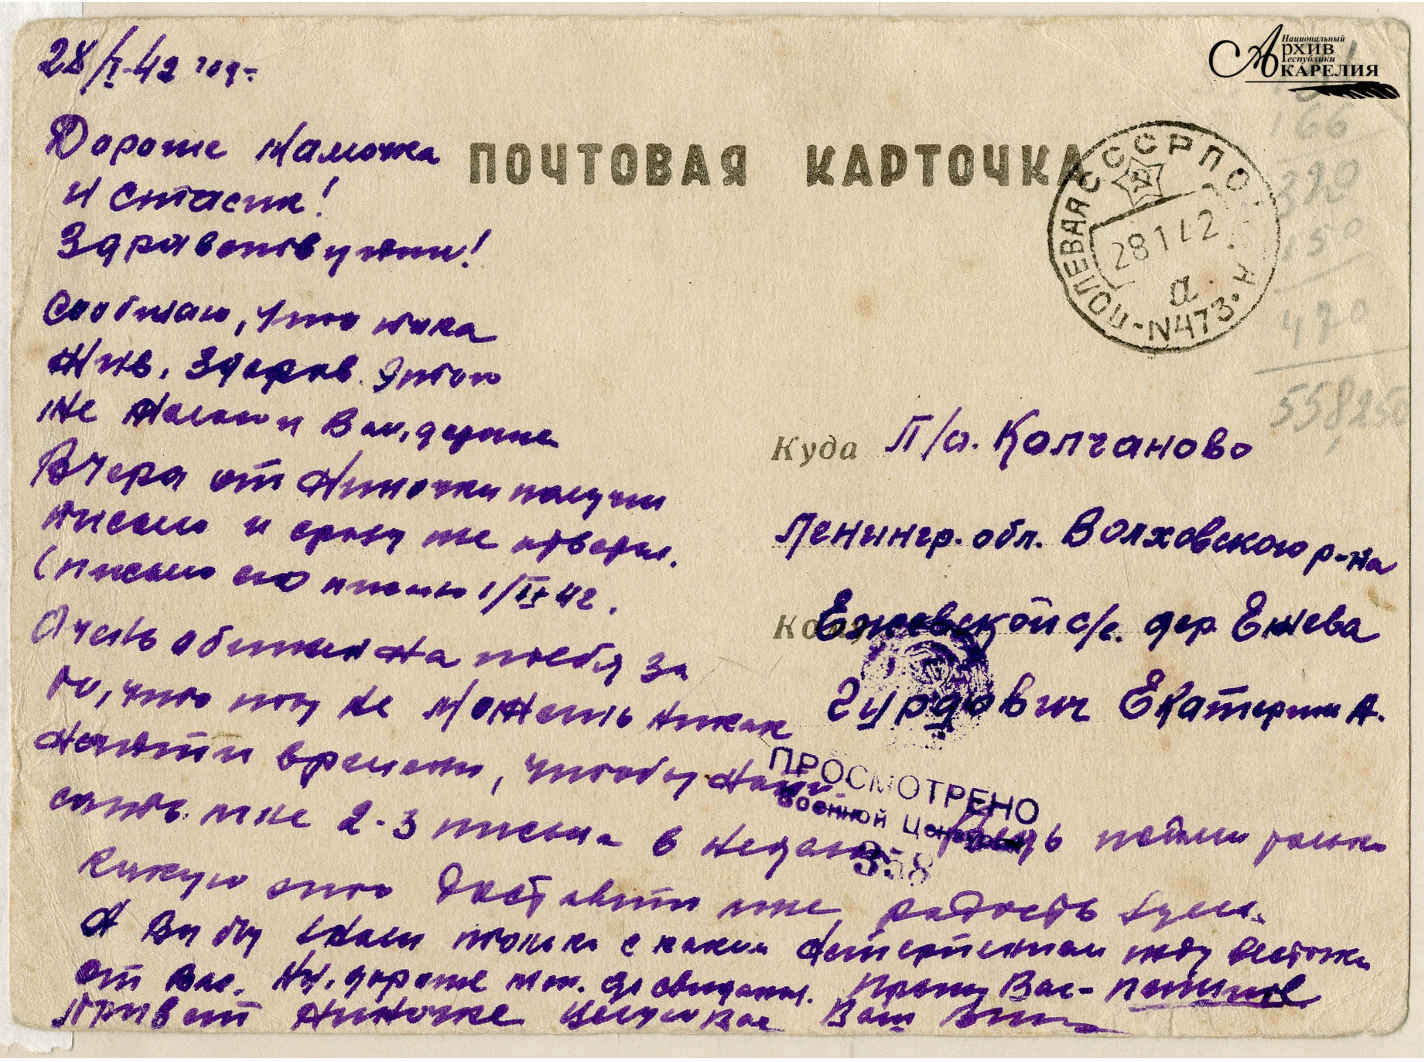 28/I-42 год.
Национальный
АРХИВ
Республики
КАРЕЛИЯ
Дорогие Мамочка
и Стасик!
Здравствуйте!
ПОЧТОВАЯ КАРТОЧКА
ПОЛЕВАЯ СССР ПО
28 1 42
а
N473
166
320
150
470
558,250
Сообщаю, что пока
жив, здоров. Этого
же желаю и Вам, дорогие
Вчера от Ниночки получил
письмо и сразу же ответил.
(письмо его писано 1/II 42.
Очень обижен на тебя за
то, что ты не можешь никак
найти времени, чтобы напи-
сать мне 2-3 письма в неделю. Ведь пойми только
какую это доставит мне радость
А Вы бы знали только с каким нетерпением жду весточки
от Вас. Ну, дорогие мои, до свидания. Прошу Вас - пишите
Привет Ниночке Целую Вас Ваш
Куда П/о. Колчаново
Ленингр. обл. Волховского р-на
Кому Ежевской с/с. дер. Ежева
Гурдович Екатерине А.
ПРОСМОТРЕНО
Военной Цензурой
358